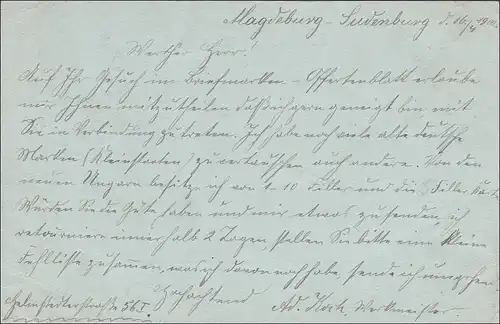 Magdeburg-Sudenburg d. 16/4 19
Werther Herr!
Auf Ihr Gesuch im Briefmarken-Offertenblatt erlaube
mir Ihnen mitzutheilen daß ich gern geneigt bin mit
Sie in Verbindung zu treten. Ich habe noch viele alte deutsche
Marken (Kleinstaaten) zu vertauschen auch andere. Von den
neuen Ungarn besitze ich von 1-10 Filler und die Filler Karte
Würden Sie die Güte haben und mir etwas zusenden, ich
retourniere innerhalb 2 Tagen stellen Sie bitte eine kleine
Fehlliste zusammen, was ich davon noch habe, sende ich umgehen.
Helmstedterstraße 56 I. Hochachtend Ad. Werkmeister.